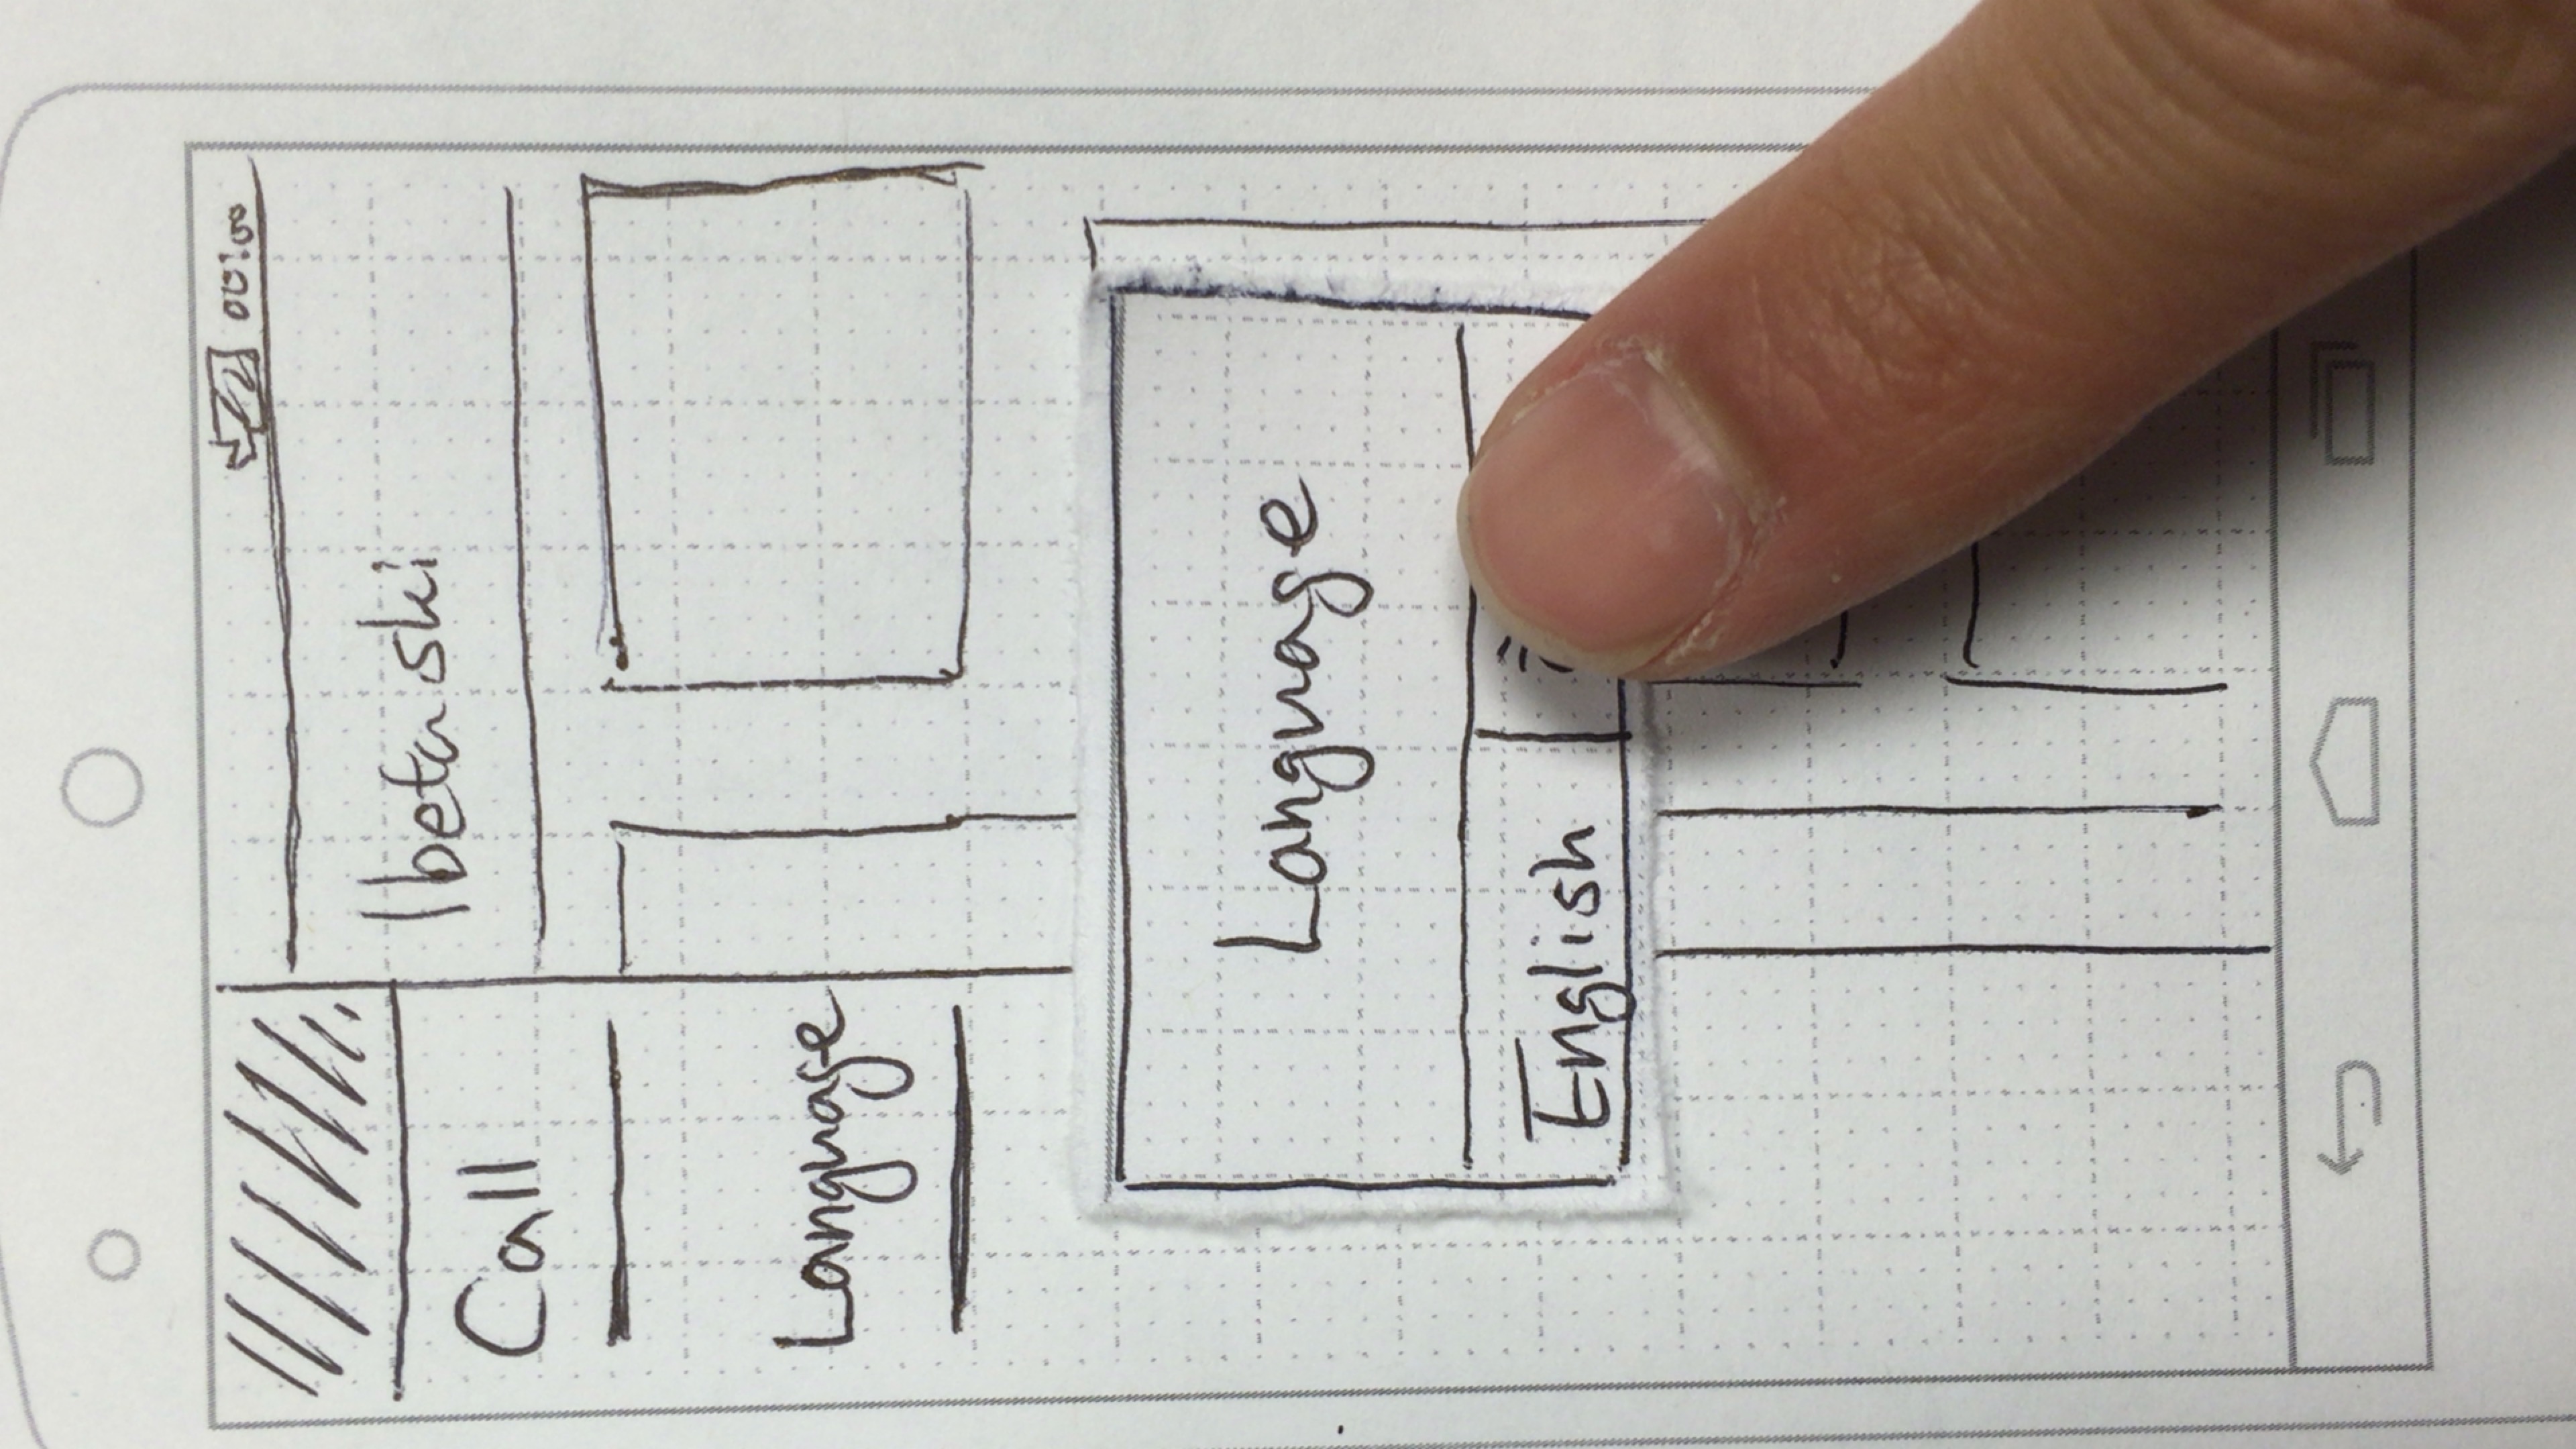 00:00
lbeta ski
Call
Language
Language
English